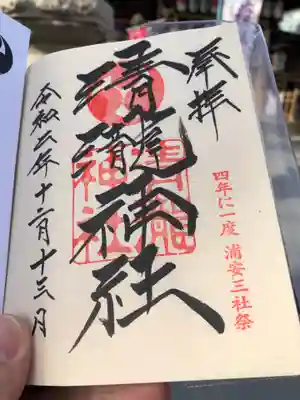 奉拝
四年に一度 浦安三社祭
清瀧神社
清瀧神社
令和二年十二月十三日